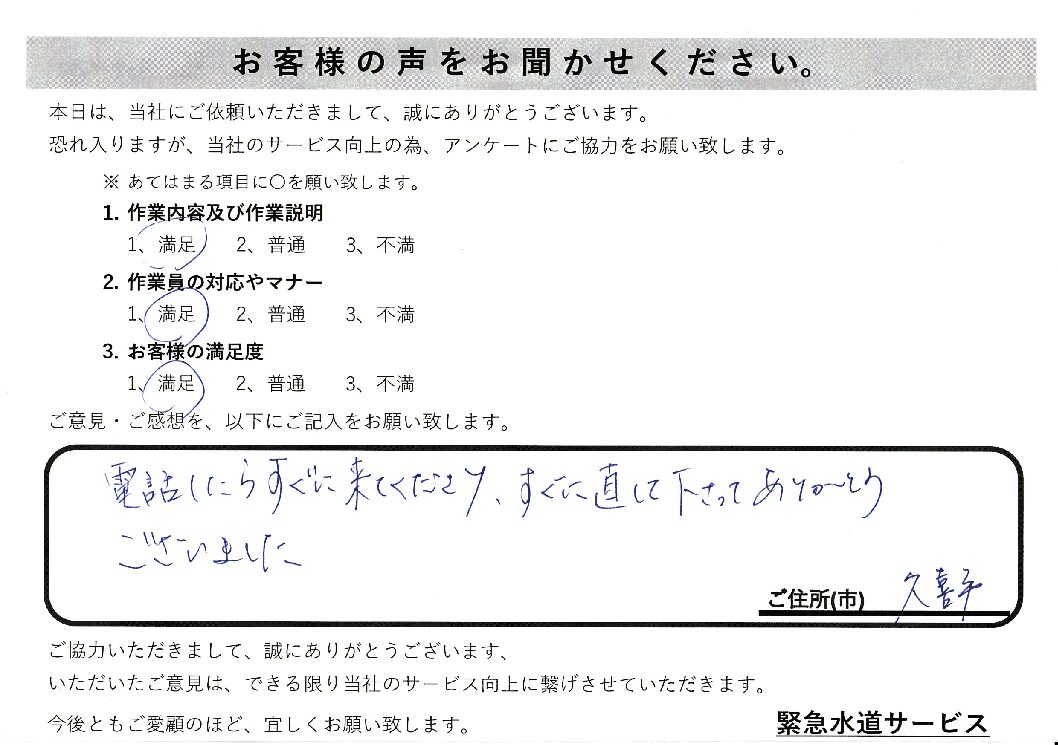 お客様の声をお聞かせください。
本日は、当社にご依頼いただきまして、誠にありがとうございます。
恐れ入りますが、当社のサービス向上の為、アンケートにご協力をお願い致します。
※ あてはまる項目に〇を願い致します。
1. 作業内容及び作業説明
1、満足 2、普通 3、不満
2. 作業員の対応やマナー
1、満足 2、普通 3、不満
3. お客様の満足度
1、満足 2、普通 3、不満
ご意見・ご感想を、以下にご記入をお願い致します。
電話したらすぐに来てくださり、すぐに直して下さってありがとう
ございました
ご住所(市) 久喜市
ご協力いただきまして、誠にありがとうございます、
いただいたご意見は、できる限り当社のサービス向上に繋げさせていただきます。
今後ともご愛顧のほど、宜しくお願い致します。
緊急水道サービス